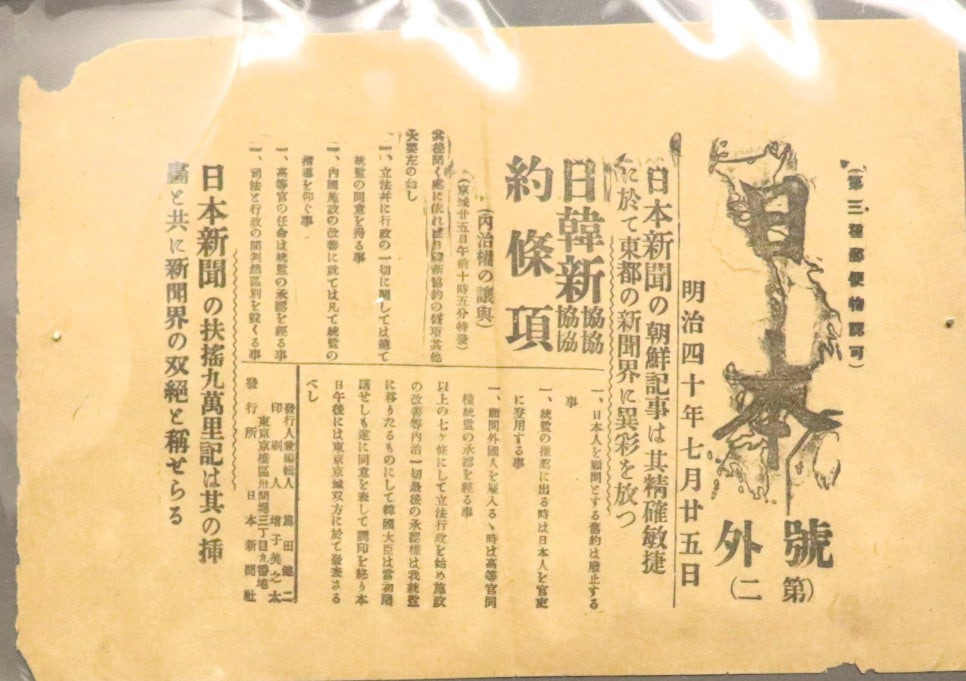 (第三種郵便物認可)
日本
號外
(第二)
明治四十年七月廿五日
日本新聞の朝鮮記事は其精確敏捷
に於て東都の新聞界に異彩を放つ
日韓新協約條項
(內治權の讓與)
(京城廿五日午前十時五分特發)
其後聞く處に依れば日韓新協約の條項其他
大要左の如し
一、立法幷に行政の一切に關しては總て
統監の同意を得る事
一、內國施政の改善に就ては凡て統監の
指導を仰ぐ事
一、高等官の任命は統監の承認を經る事
一、司法と行政の間判然區別を設くる事
一、日本人を顧問とする舊約は廢止する
事
一、統監の推薦に出る時は日本人を官吏
に登用する事
一、顧問外國人を雇入るゝ時は高等官同
樣統監の承認を經る事
以上の七ヶ條にして立法行政を始め施政
の改善等內治一切最後の承認權は我統監
に移りたるものにして韓國大臣は當初躊
躇せしも遂に同意を表して調印を終り本
日午後には東京京城双方に於て發表さる
べし
發行人兼編輯人 田健二
印刷人 增子美之太
東京京橋區三丁目九番地
發行所 日本新聞社
日本新聞の扶搖九萬里記は其の挿
畵と共に新聞界の双絕と稱せらる